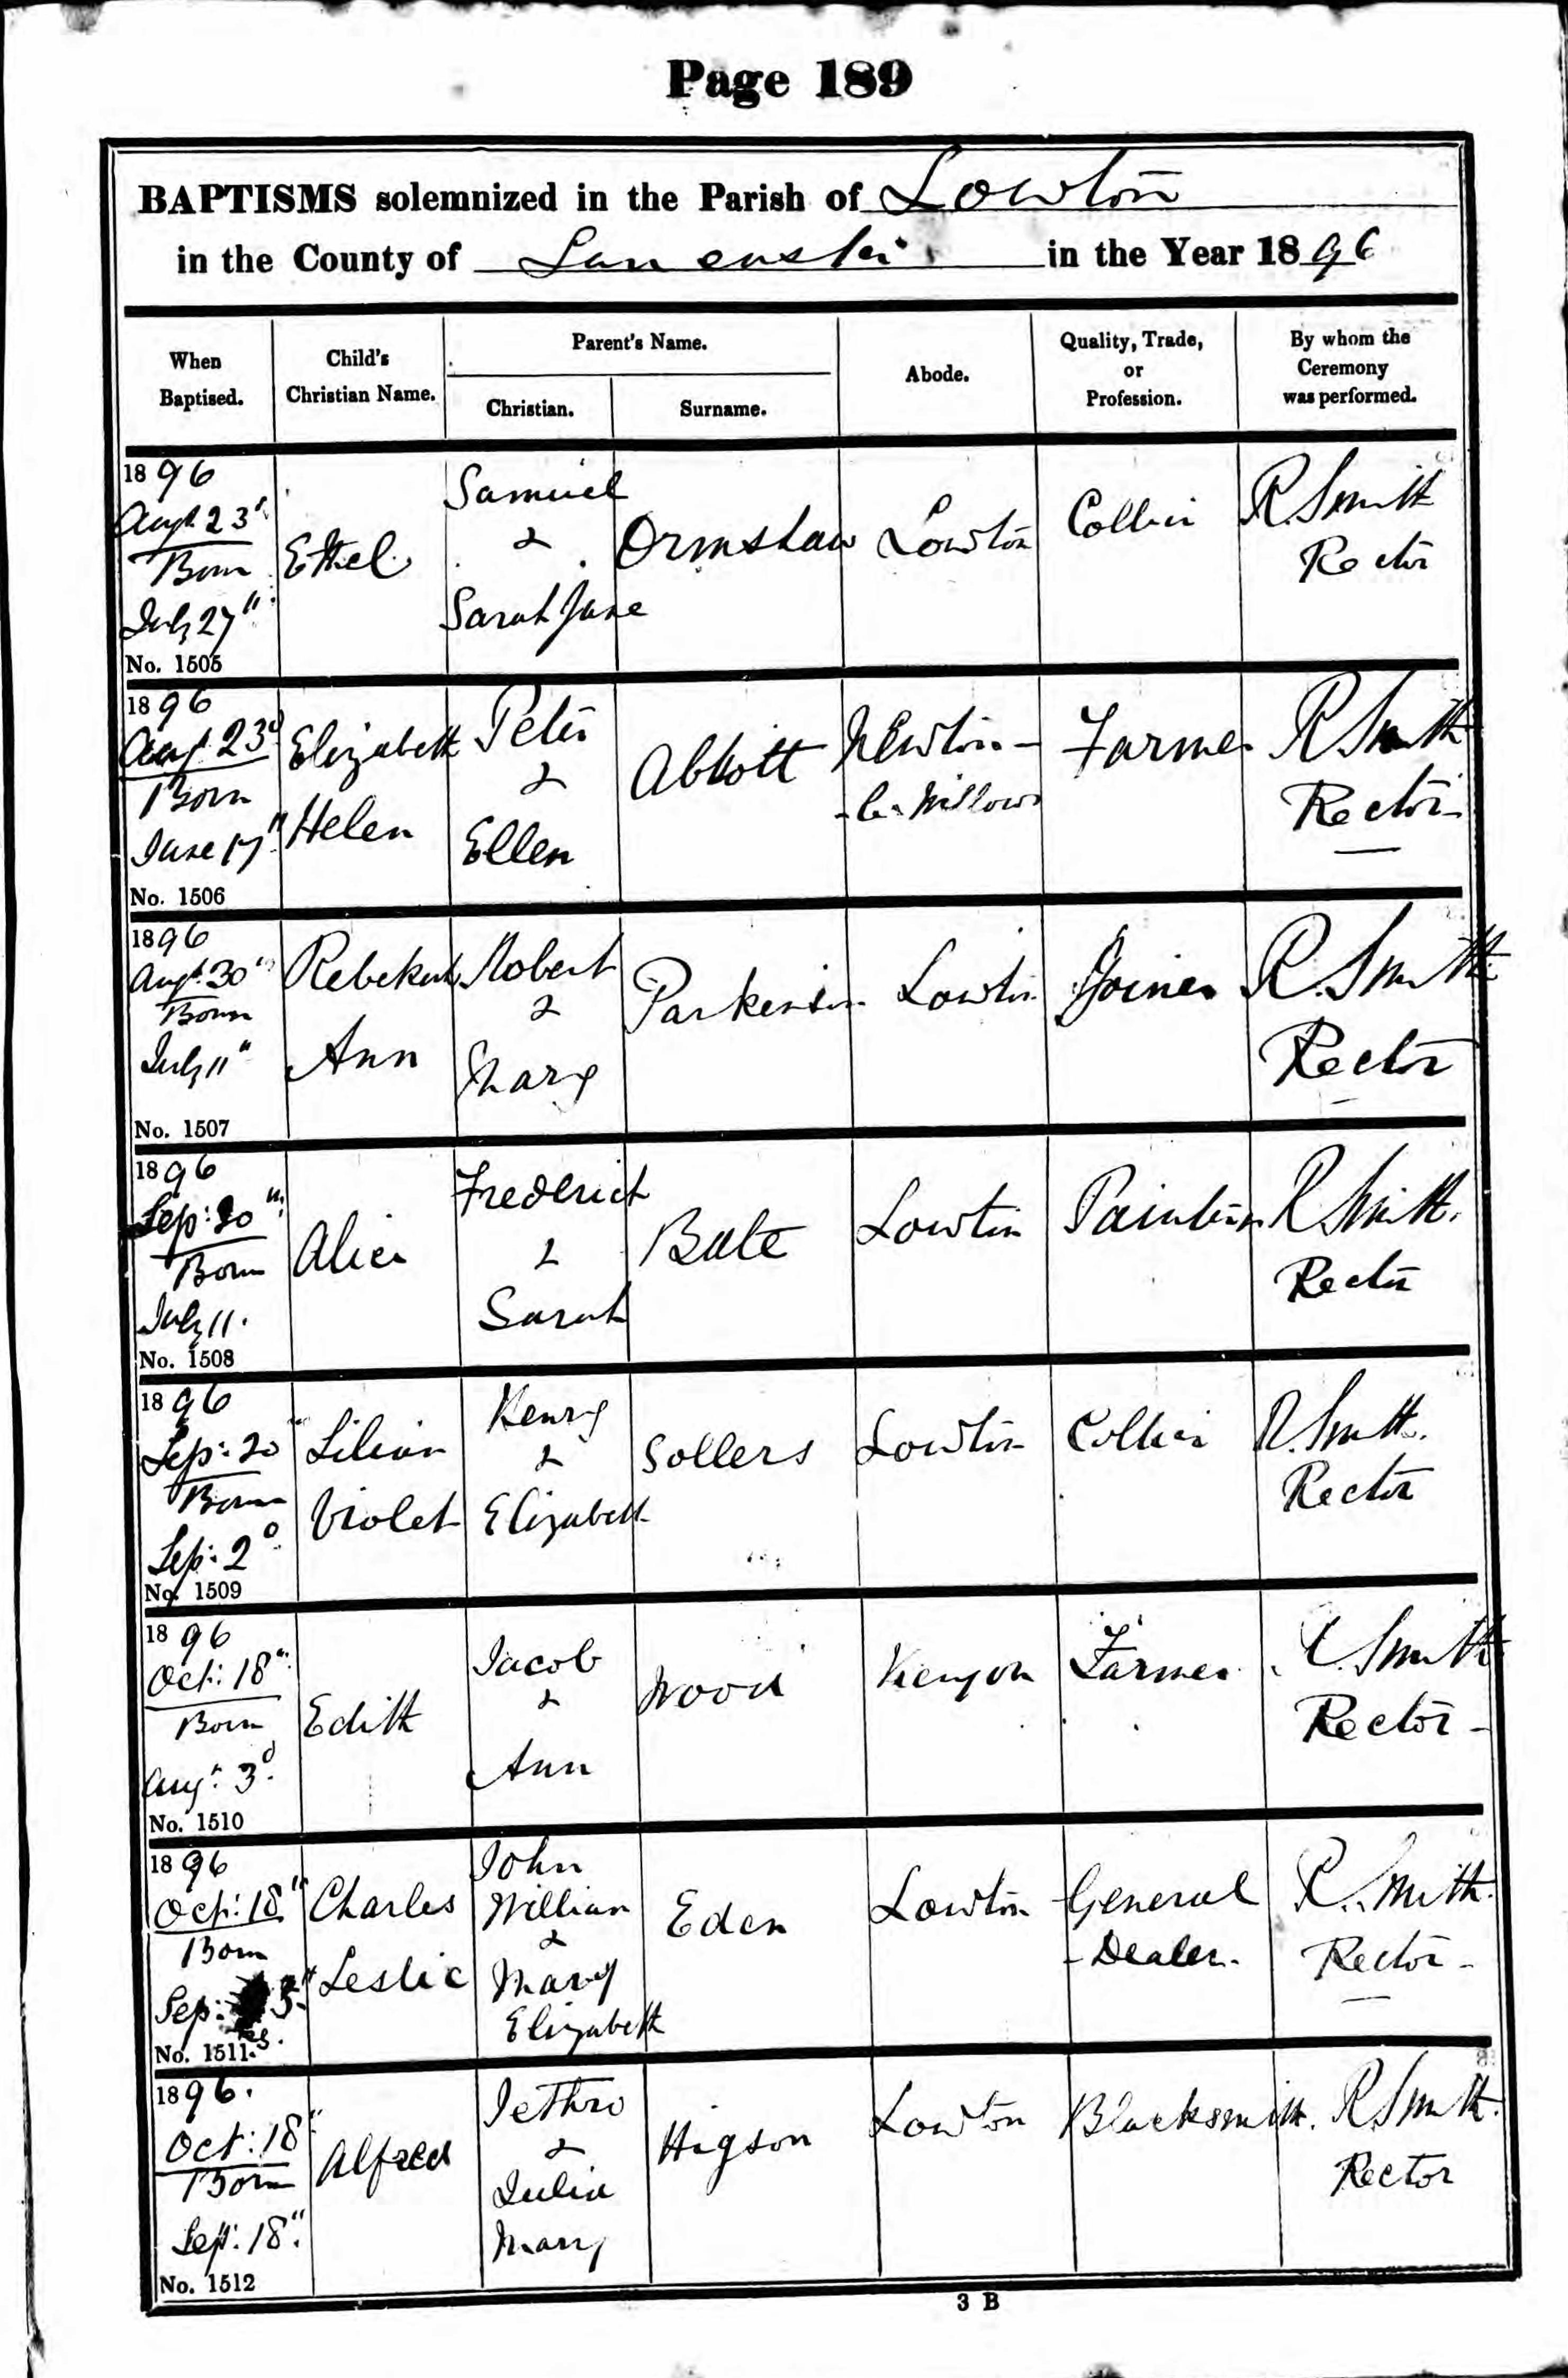 Page 189
BAPTISMS solemnized in the Parish of Lowton
in the County of Lancaster in the Year 1896
When Baptised.
Child's Christian Name.
Parent's Name.
Christian.
Surname.
Abode.
Quality, Trade, or Profession.
By whom the Ceremony was performed.
1896
Augt 23d
Born
July 27"
No. 1505
Ethel
Samuel
&
Sarah Jane
Ormshaw
Lowton
Collier
R. Smith
Rector
1896
Augt 23d
Born
June 17"
No. 1506
Elizabeth
Helen
Peter
&
Ellen
Abbott
Newton-
-le-Willows
Farmer
R Smith
Rector-
1896
Augt 30"
Born
July 11"
No. 1507
Rebekah
Ann
Robert
&
Mary
Parkinson
Lowton
Joiner
R. Smith
Rector
1896
Sep: 20"
Born
July 11.
No. 1508
Alice
Frederick
&
Sarah
Bate
Lowton
Painter
R Smith.
Rector
1896
Sep: 20"
Born
Sep: 2d
No. 1509
Lilian
Violet
Henry
&
Elizabeth
Sollers
Lowton
Collier
R. Smith.
Rector
1896
Oct: 18"
Born
Aug: 3d
No. 1510
Edith
Jacob
&
Ann
Wood
Kenyon
Farmer
R. Smith
Rector-
1896
Oct: 18"
Born
Sep: 3"
No. 1511
Charles
Leslie
John
William
&
Mary
Elizabeth
Eden
Lowton
General
-Dealer-
R. Smith.
Rector-
1896.
Oct: 18"
Born
Sept: 18".
No. 1512
Alfred
Jethro
&
Julia
Mary
Higson
Lowton
Blacksmith.
R Smith.
Rector
3 B